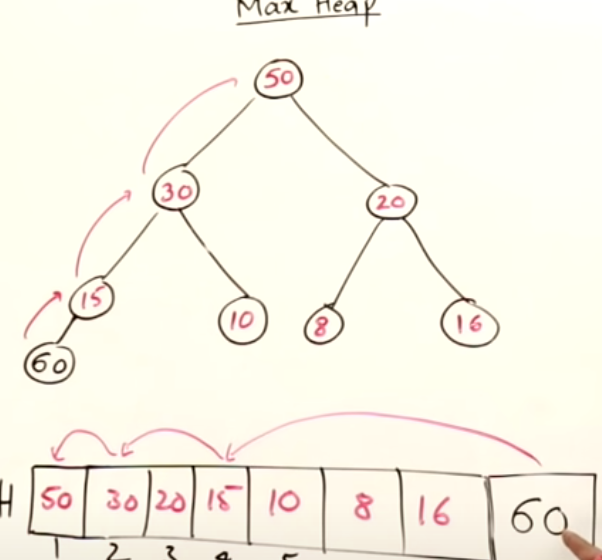 Max Heap
50
30
20
15
10
8
16
60
H 50 30 20 15 10 8 16 60
1 2 3 4 5